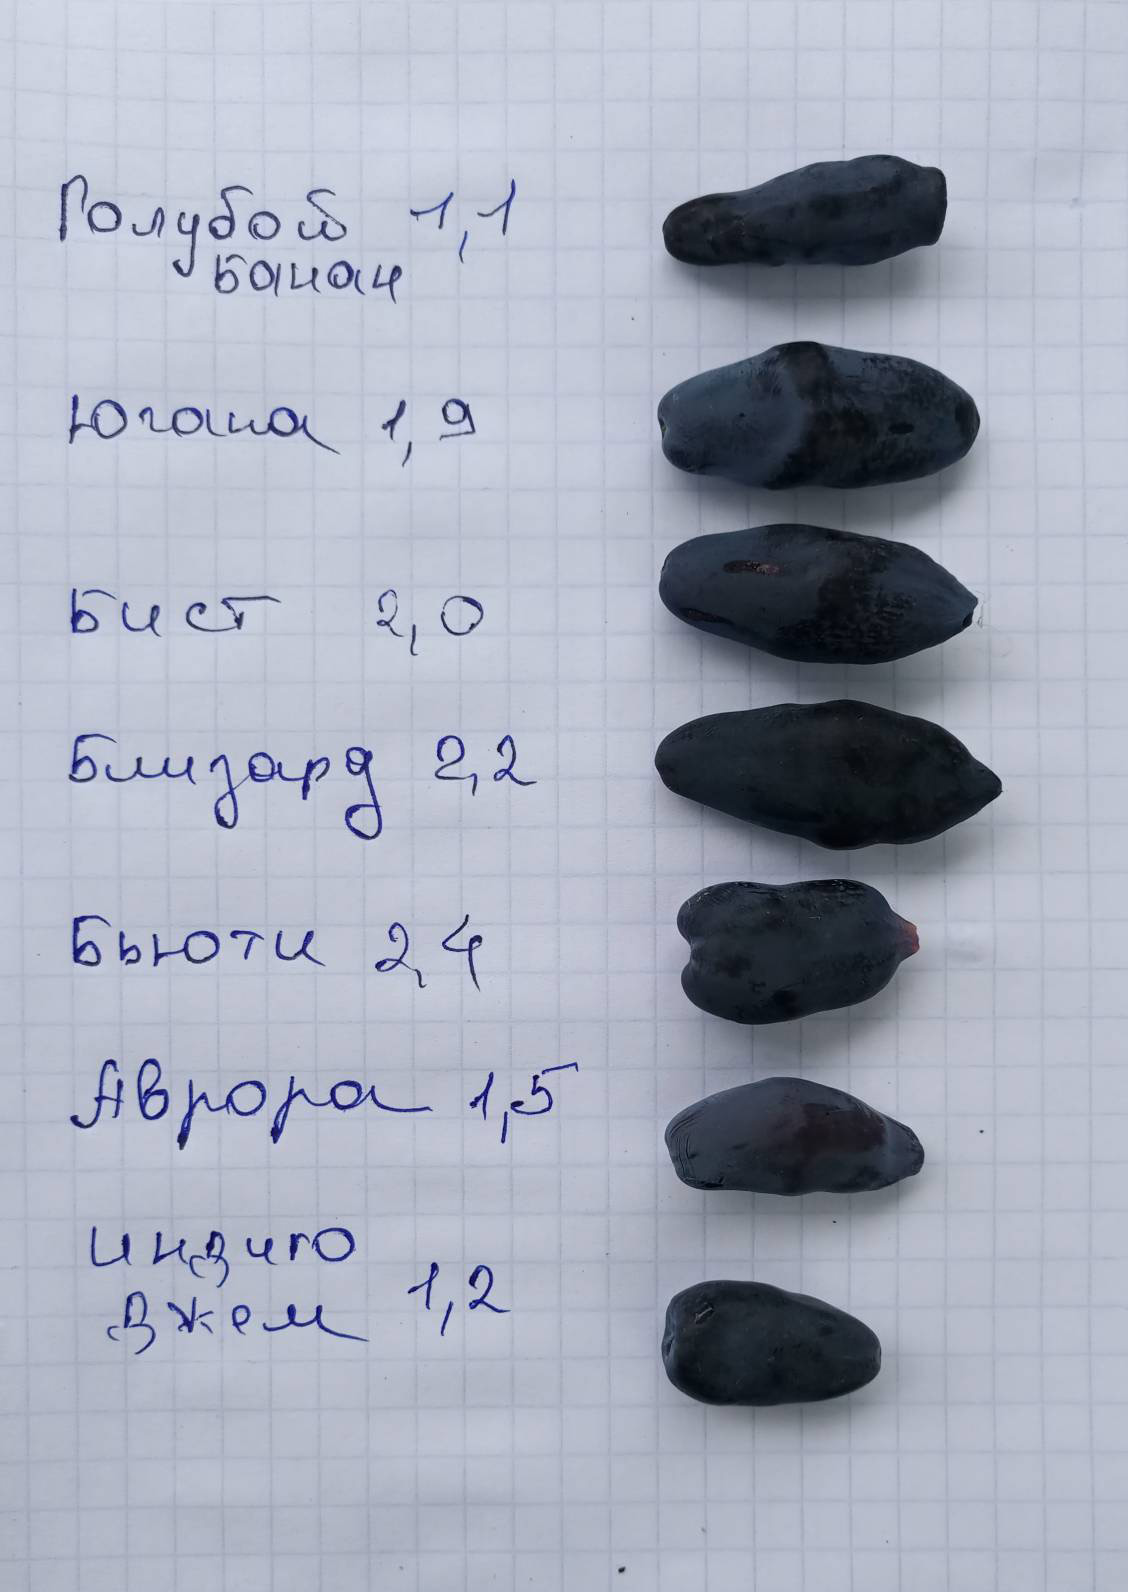 Голубой 1,1
банан
Югана 1,9
Бист 2,0
Близард 2,2
Бьюти 2,4
Аврора 1,5
Индиго
джем 1,2